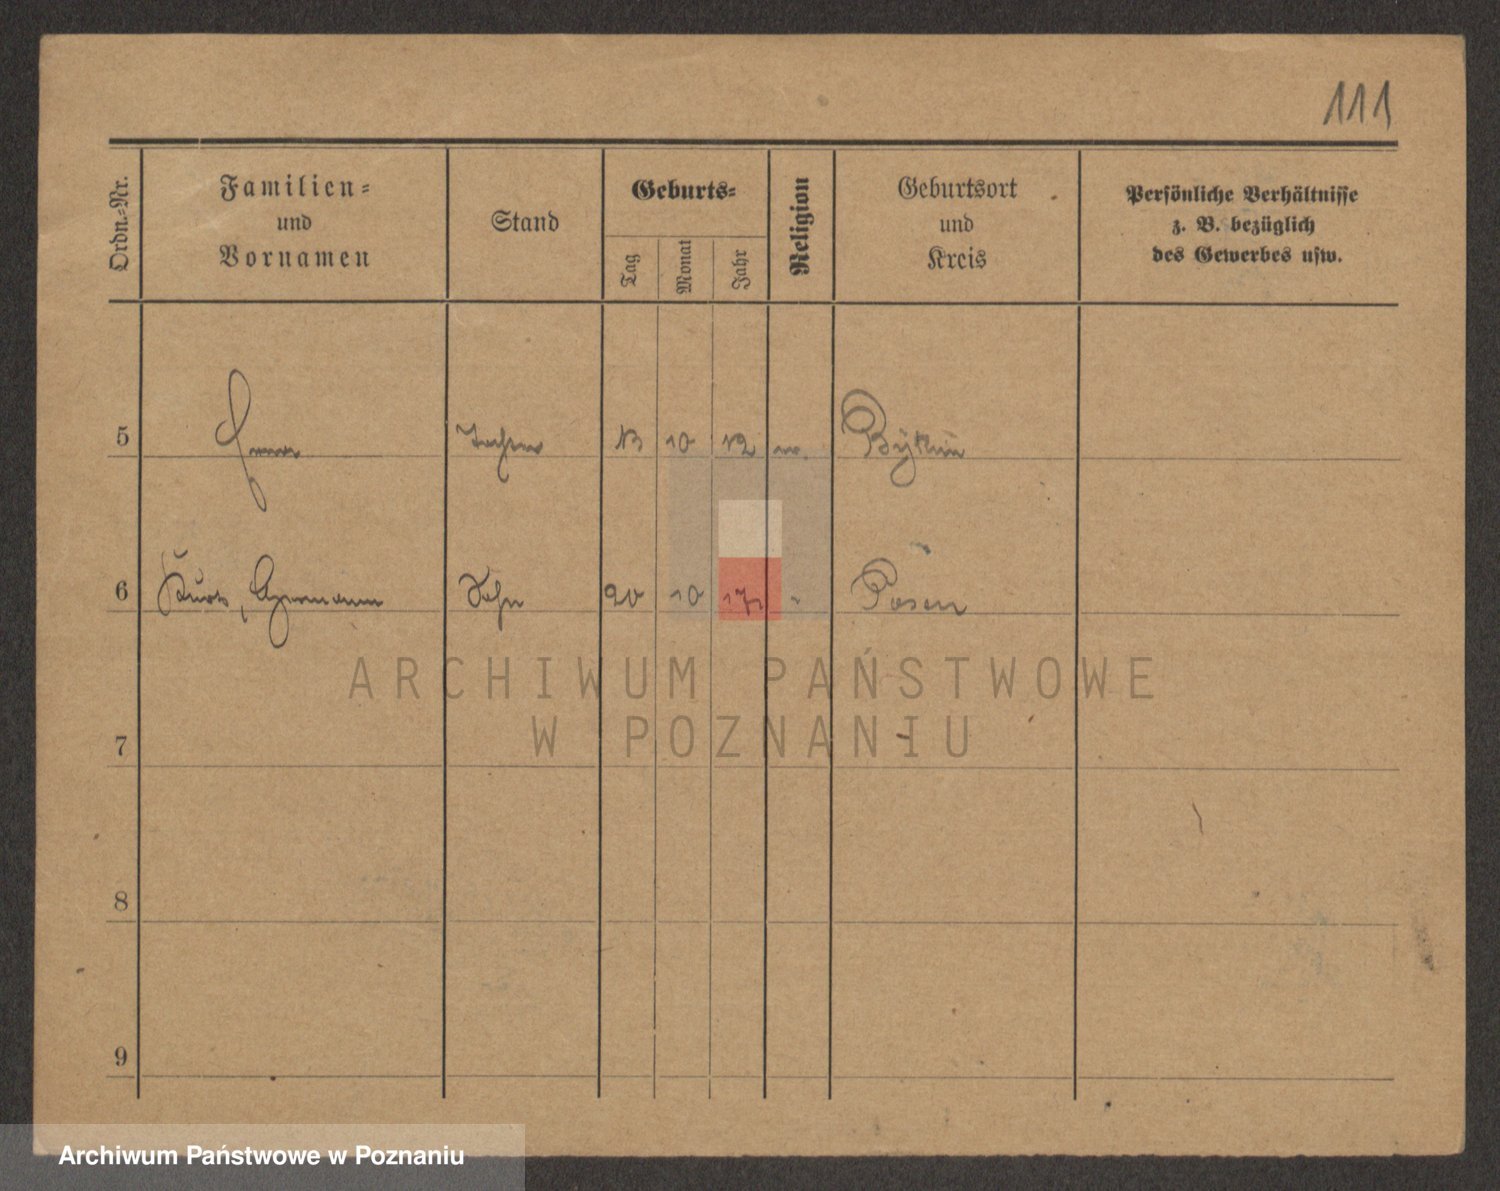 111
Ordn.=Nr.
Familien=
und
Vornamen
Stand
Geburts=
Tag
Monat
Jahr
Religion
Geburtsort
und
Kreis
Persönliche Verhältnisse
z. B. bezüglich
des Gewerbes usw.
5 Tochter 13 10 12
6 Kurt, Hermann Sohn 20 10 Posen
7
8
9
ARCHIWUM PAŃSTWOWE
W POZNANIU
Archiwum Państwowe w Poznaniu